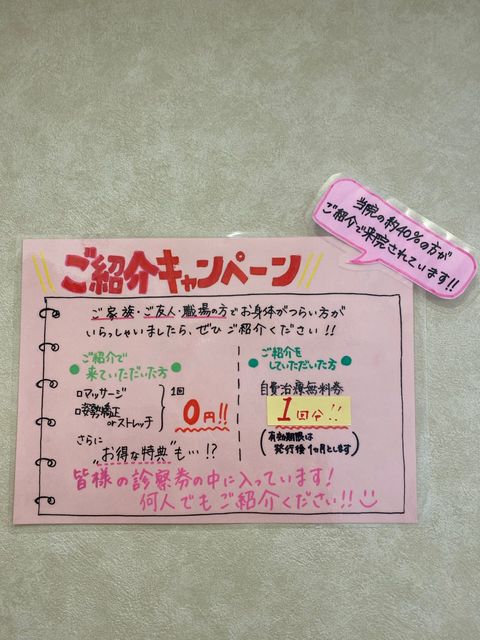 当院の約40%の方が
ご紹介で来院されています!!
ご紹介キャンペーン
ご家族・ご友人・職場の方でお身体がつらい方が
いらっしゃいましたら、ぜひご紹介ください!!
ご紹介で
来ていただいた方
□マッサージ
□姿勢矯正
orストレッチ
1回
0円!!
さらに
"お得な特典"も…!?
ご紹介を
していただいた方
自費治療無料券
1回分!!
(有効期限は
発行後1ヶ月とします)
皆様の診察券の中に入っています!
何人でもご紹介ください!!